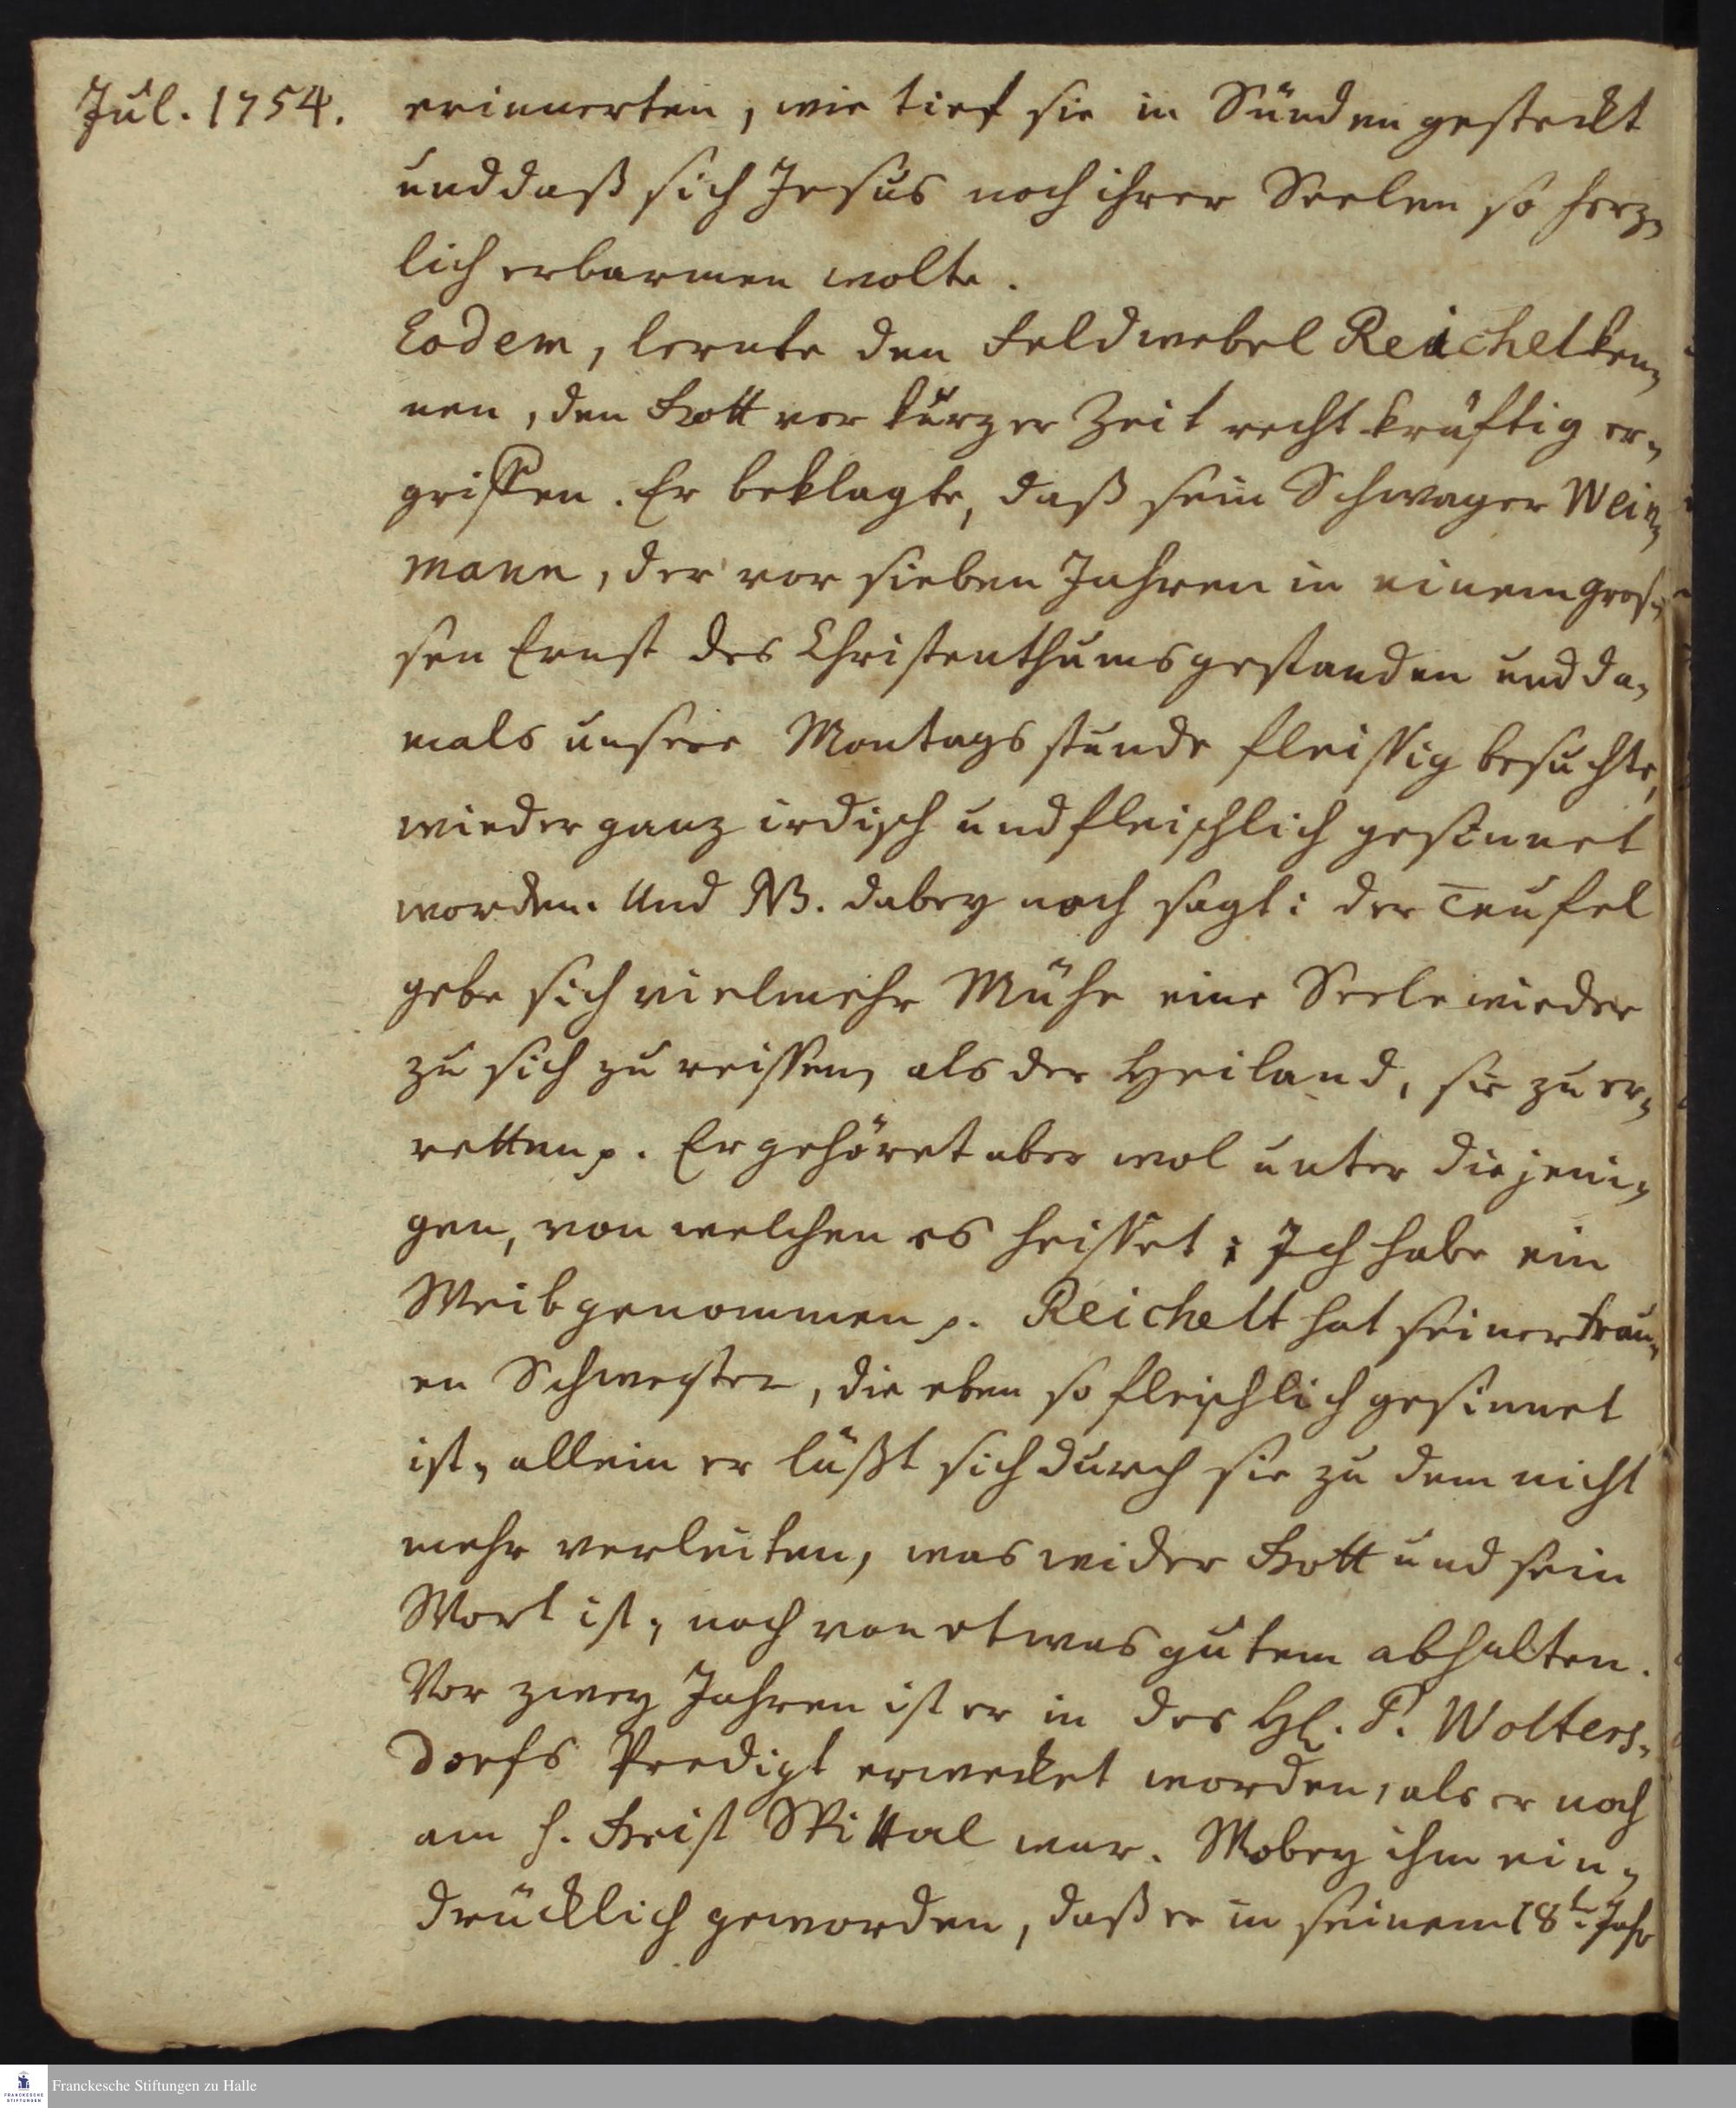 Jul. 1754.
erinnerten, wie tief sie in Sünden gesteckt
und daß sich Jesus noch ihrer Seelen so herz-
lich erbarmen wolte.
Eodem, lernte den Feldwebel Reichelt ken-
nen, den Gott vor kurzer Zeit recht kräftig er-
griffen. Er beklagte, daß sein Schwager Wein-
mann, der vor sieben Jahren in einem gros-
sen Ernst des Christenthums gestanden und da-
mals unsere Montags stunde fleissig besuchte,
wieder ganz irdisch und fleischlich gesinnet
worden. Und NB. dabey noch sagt: der Teufel
gebe sich vielmehr Mühe eine Seele wieder
zu sich zu reissen, als der Heiland, sie zu er-
retten p. Er gehöret aber wol unter diejeni-
gen, von welchen es heisset: Ich habe ein
Weib genommen p. Reichelt hat seiner Frau-
en Schwester, die eben so fleischlich gesinnet
ist, allein er läßt sich durch sie zu dem nicht
mehr verleiten, was wider Gott und sein
Wort ist, noch von etwas gutem abhalten.
Vor zwey Jahren ist er in des H. P. Wolters-
dorfs Predigt erwecket worden, als er noch
am h. Geist Spittal war. Wobey ihm ein-
drücklich geworden, daß er in seinem 18t. Jahr
Franckesche Stiftungen zu Halle
FRANCKESCHE
STIFTUNGEN